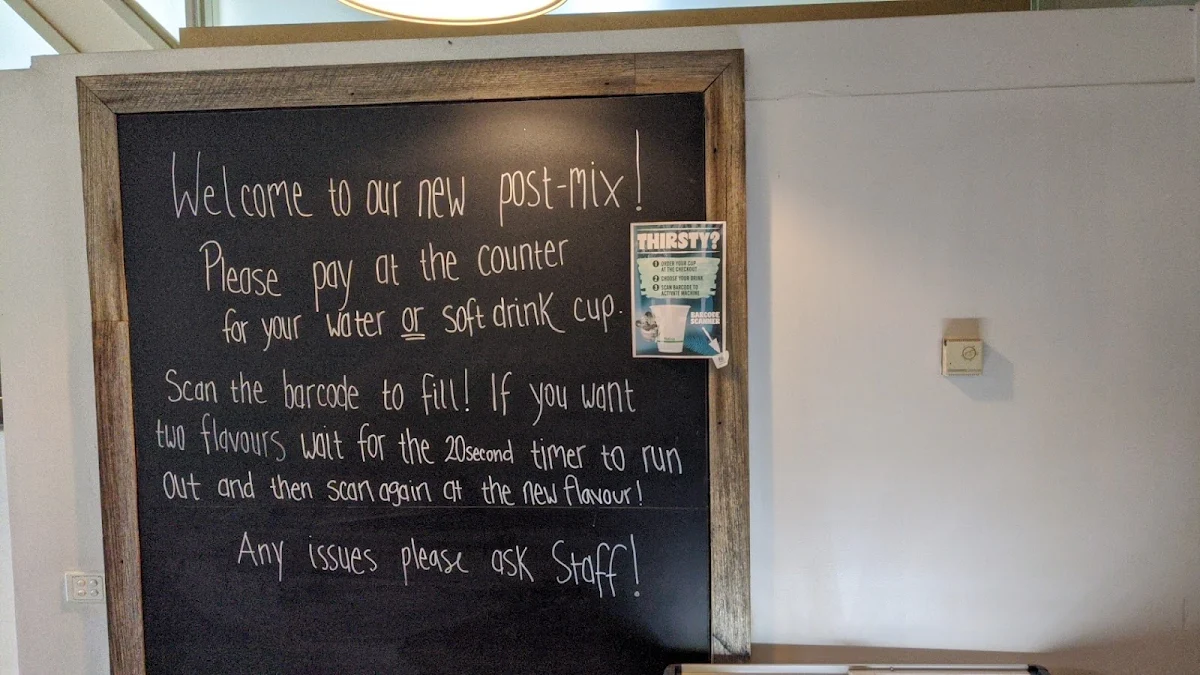 Welcome to our new post-mix!
Please pay at the counter
for your water or soft drink cup.
Scan the barcode to fill! If you want
two flavours wait for the 20second timer to run
out and then scan again at the new flavour!
Any issues please ask Staff!
THIRSTY?
1 ORDER YOUR CUP
AT THE CHECKOUT
2 CHOOSE YOUR DRINK
3 SCAN BARCODE TO
ACTIVATE MACHINE
BARCODE
SCANNER